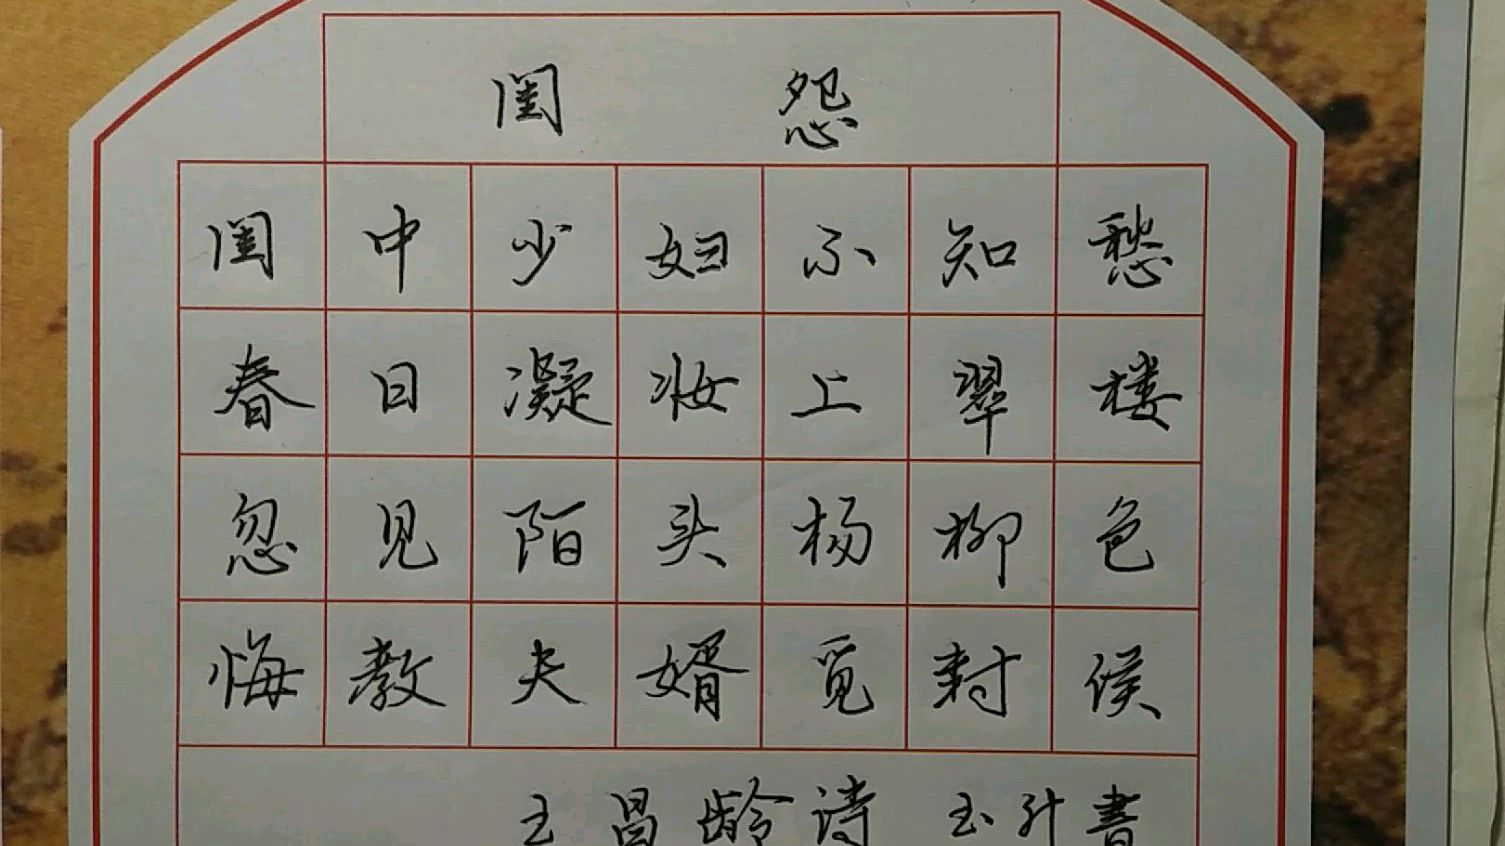 闺怨
闺中少妇不知愁
春日凝妆上翠楼
忽见陌头杨柳色
悔教夫婿觅封侯
王昌龄诗 玉升書